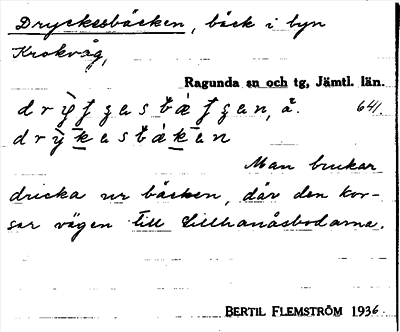 Dryckesbäcken, bäck i byn
Krokvåg,
Ragunda sn och tg, Jämtl. län.
641.
Man brukar
dricka ur bäcken, där den kor-
sar vägen till Lillhanåsbodarna.
BERTIL FLEMSTRÖM 1936.